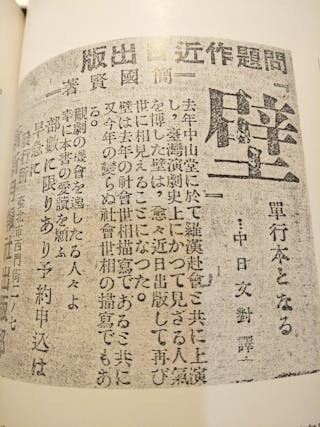 問題作近日出版
簡國賢著
「壁」
單行本となる
中日文對譯
去年中山堂に於て羅漢赴會と共に上演
し、臺灣演劇史上にかつて見ざる人氣
を博した壁は、愈々近日出版して再び
世に相見えることになつた。
壁は去年の社會世相描寫であると共に
又今年の變らぬ社會世相の描寫でもあ
る。
觀劇の機會を逸したる人々よ
幸に本書の愛讀を願ふ
部數に限りあり予約申込は
早急に
發行所 臺北市西門街一ノ七
社出版部